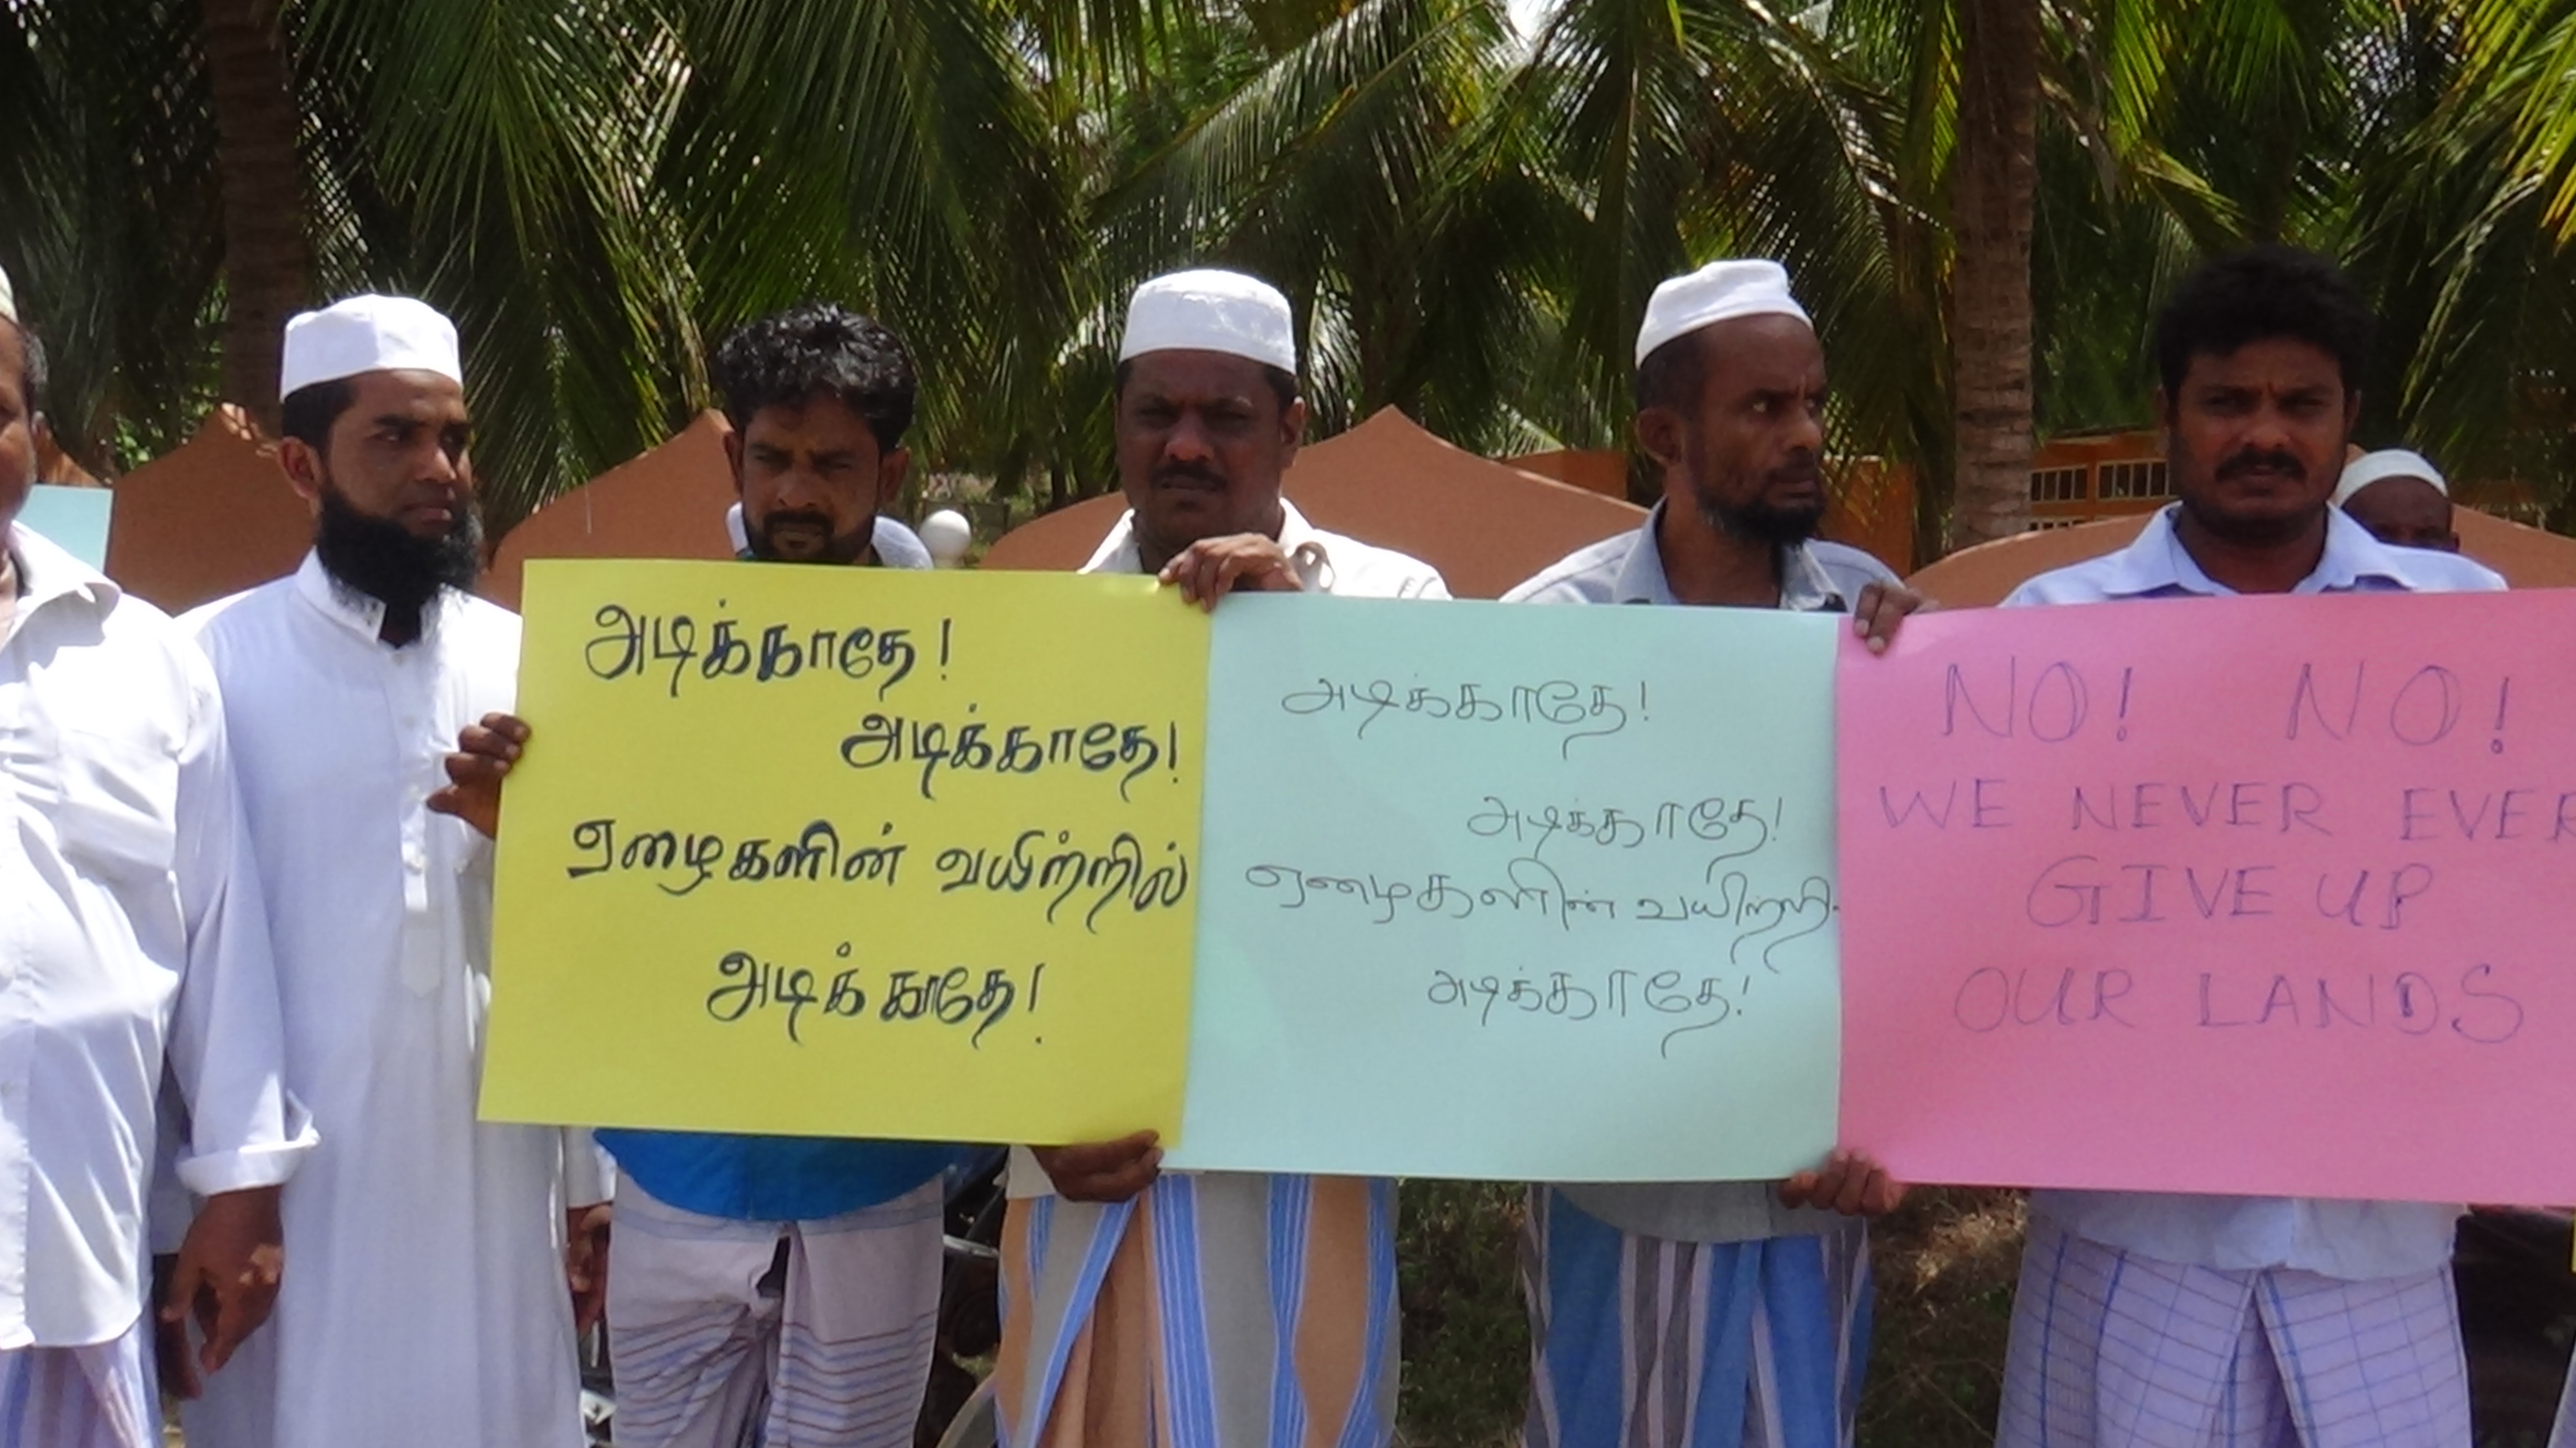 அடிக்காதே!
அடிக்காதே!
ஏழைகளின் வயிற்றில்
அடிக்காதே!
அடிக்காதே!
அடிக்காதே!
ஏழைகளின் வயிற்றி
அடிக்காதே!
NO! NO!
WE NEVER EVER
GIVE UP
OUR LANDS